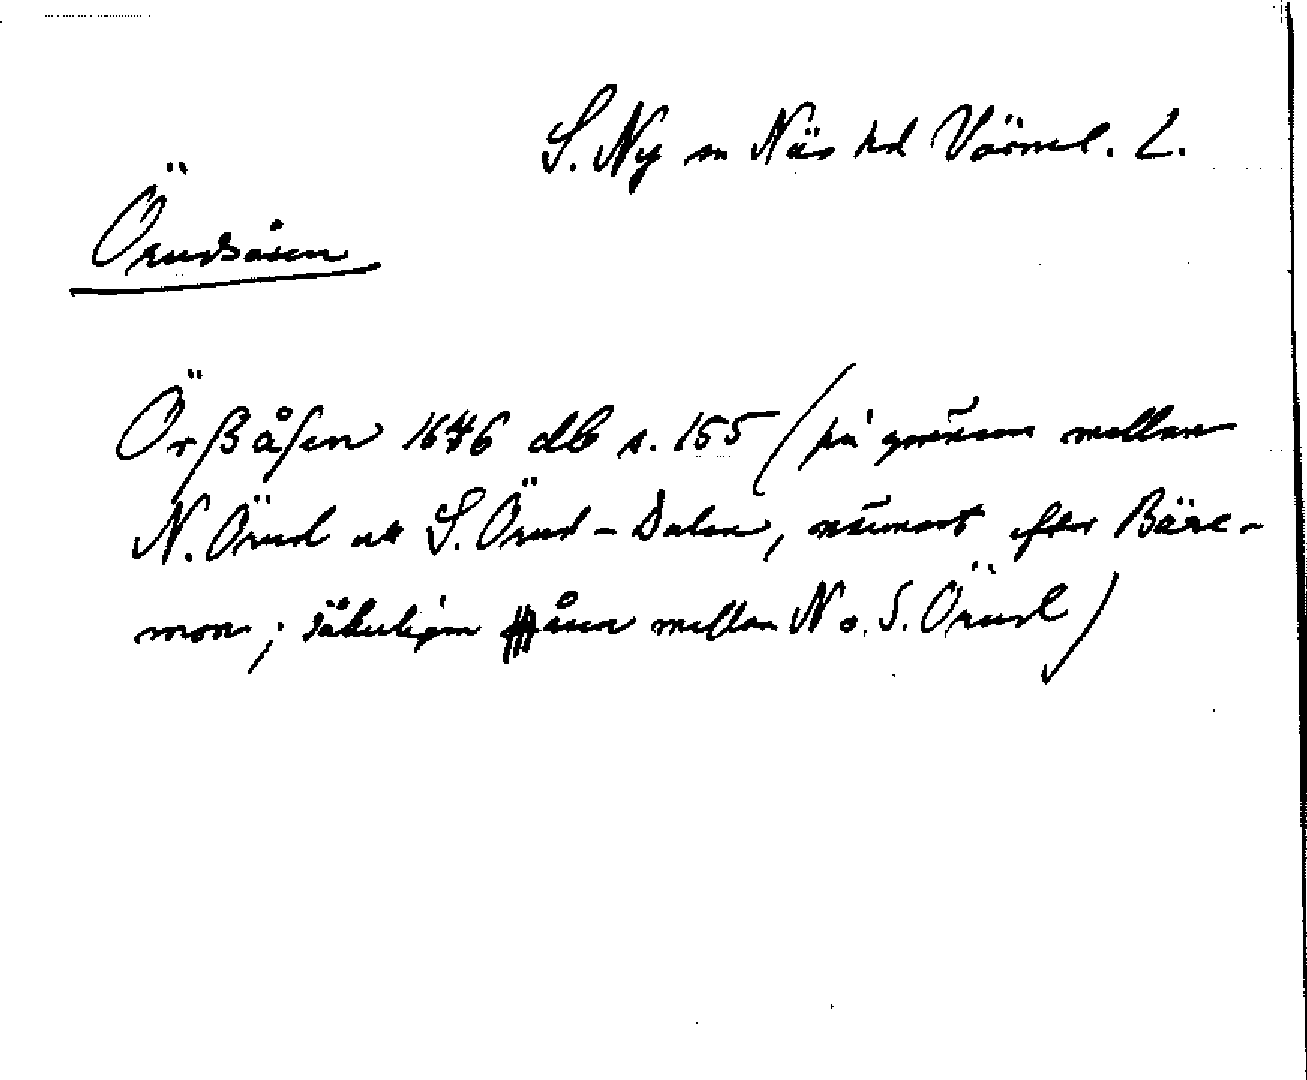 S. Ny sn Näs hd Värml. L.
Örudsåsen
Örßåsen 1646 db s. 155 (på gränsen mellan
N. Örud och S. Örud-Dalen, närmast efter Bäre-
mon; säkerligen åsen mellan N o. S. Örud)